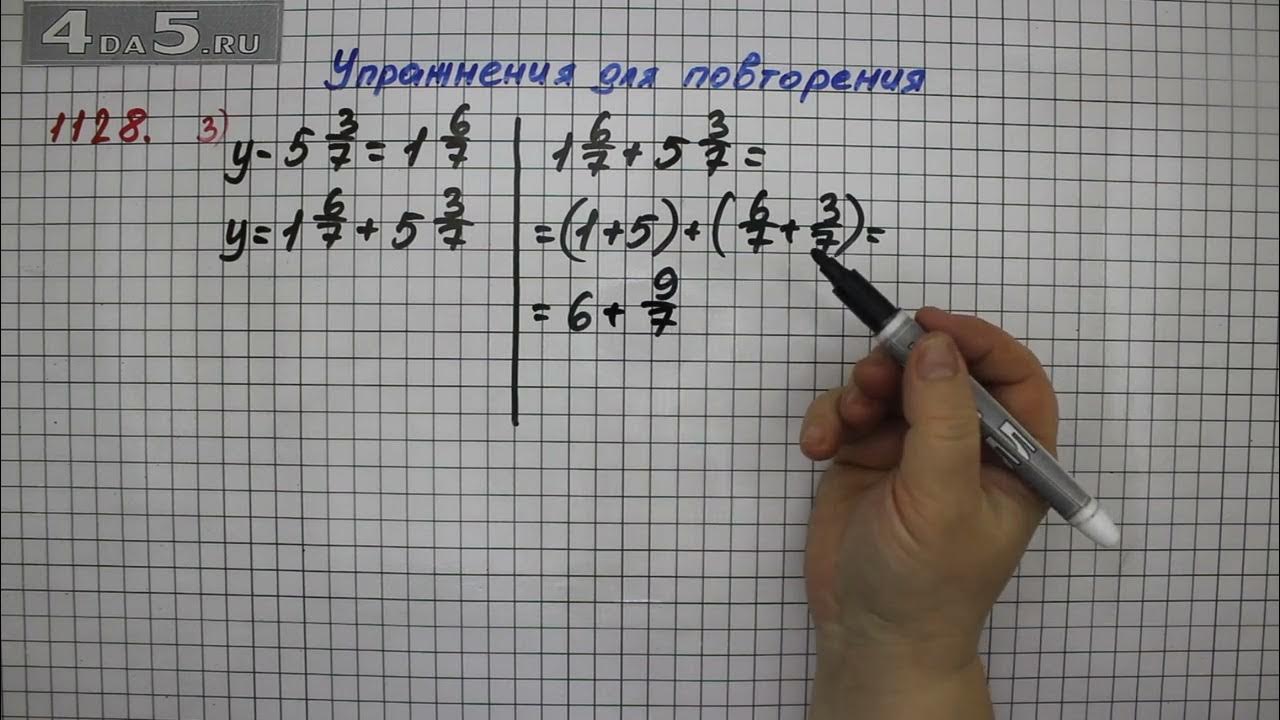 4DA5.RU
Упражнения для повторения
1128. 3) y - 5 3/7 = 1 6/7
y = 1 6/7 + 5 3/7
1 6/7 + 5 3/7 =
= (1+5) + (6/7 + 3/7) =
= 6 + 9/7